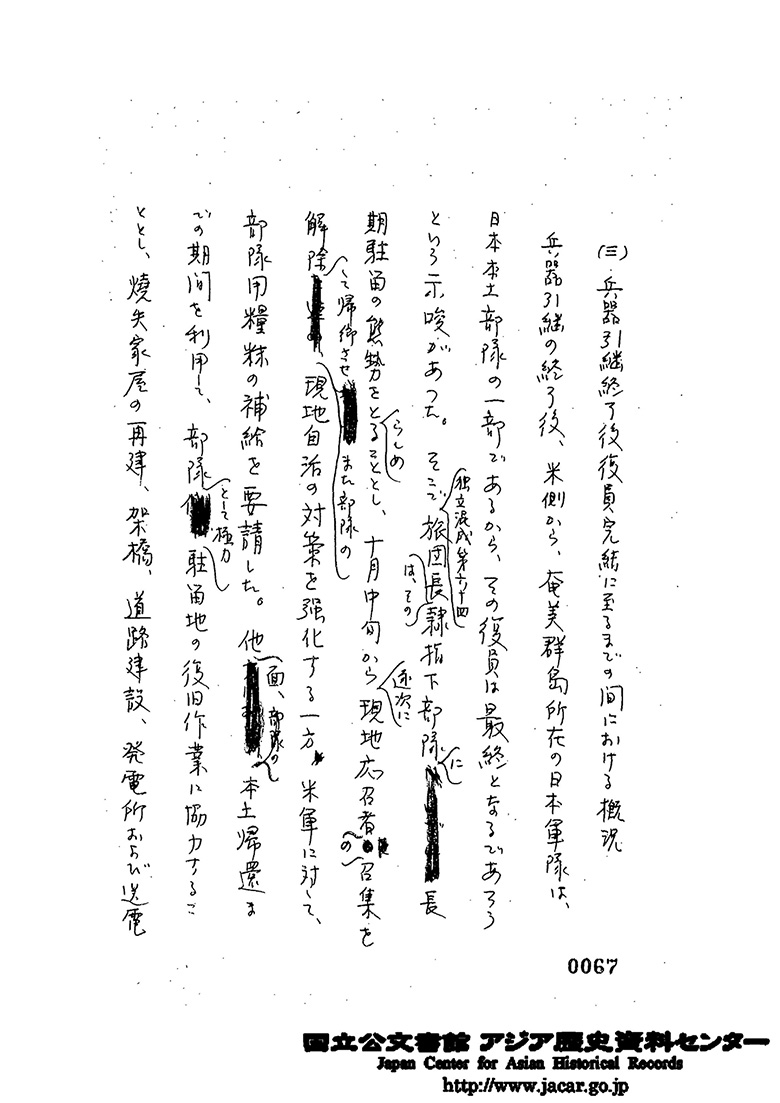 (三) 兵器引継終了後復員完結に至るまでの間における概況
兵器引継の終了後、米側から、奄美群島所在の日本軍隊は、
日本本土部隊の一部であるから、その復員は最終となるであろう
という示唆があつた。そこで独立混成第六十四旅団長は、その隷指下部隊に長
期駐留の態勢をとらしめることとし、十月中旬から逐次に現地応召者の召集を
解除して帰郷させ、また部隊の現地自活の対策を強化する一方、米軍に対して、
部隊用糧秣の補給を要請した。他面、部隊の本土帰還ま
での期間を利用して、部隊として極力駐留地の復旧作業に協力するこ
ととし、焼失家屋の再建、架橋、道路建設、発電所および送電
0067
国立公文書館 アジア歴史資料センター
Japan Center for Asian Historical Records
http://www.jacar.go.jp